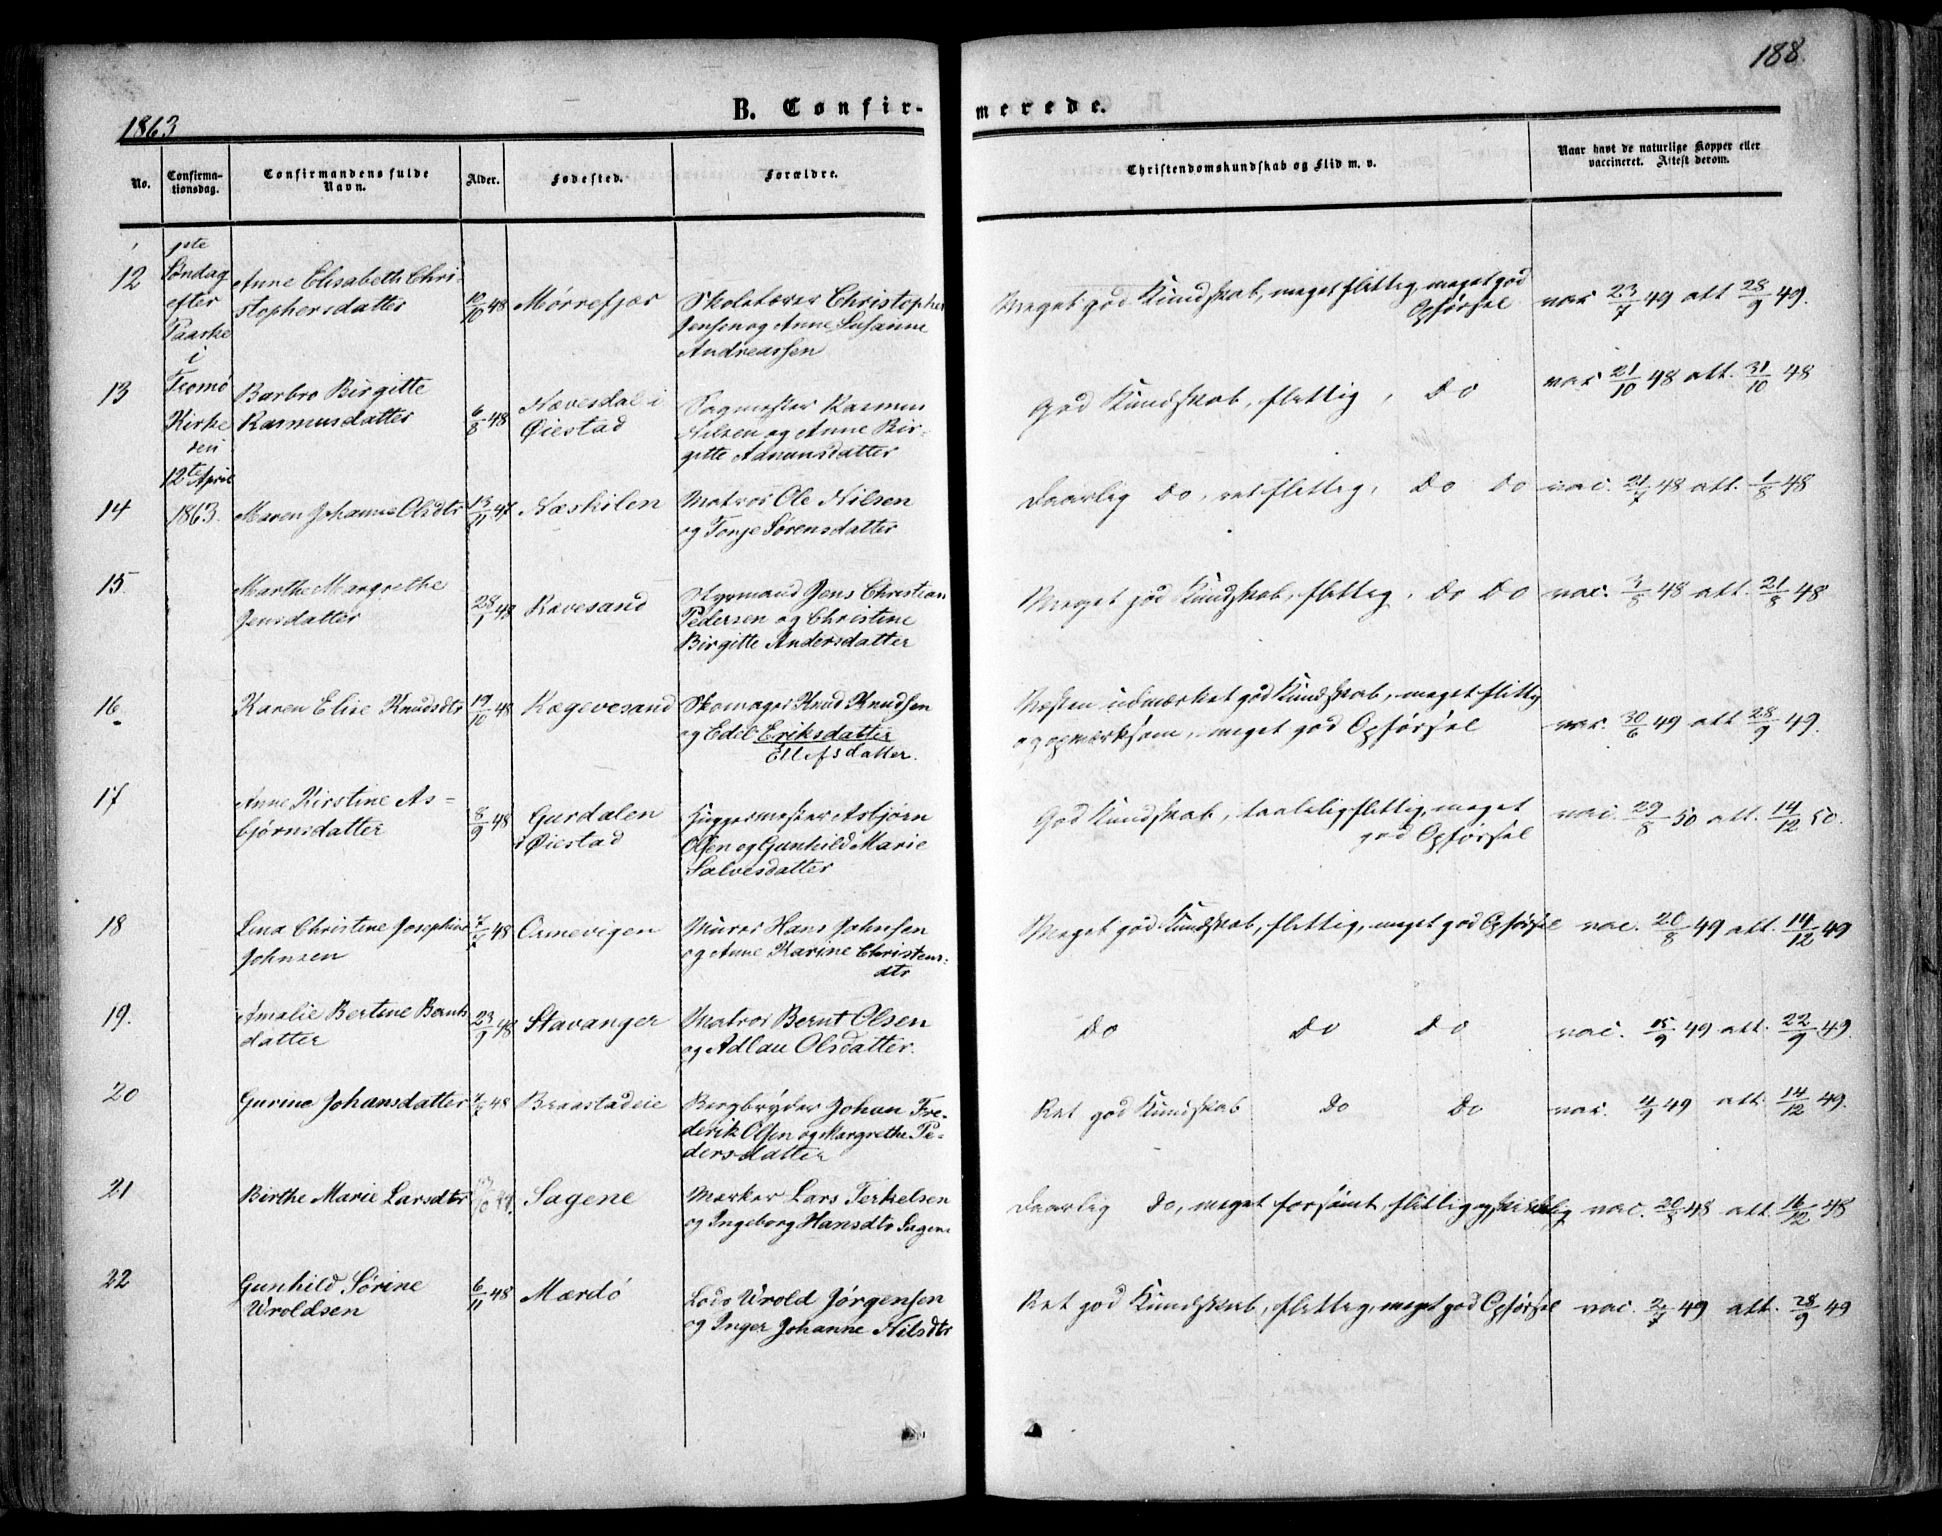 188.
1863
B. Confir-merede.
No.
Confirma-
tionsdag.
Confirmandens fulde
Navn.
Alder.
Fødested.
Forældre.
Christendomskundskab og Flid m. v.
Naar havt de naturlige Kopper eller
vaccineret. Attest derom.
1ste
Søndag
efter
Paaske
i
Tromø
Kirke
den
12te April
1863.
12
Anne Elisabeth Chri-
stophersdatter
10/10 48
Mørrefjær
Skolelærer Christopher
Jensen og Anne Susanne
Andreassen
Meget god Kundskab, meget flittig, meget god
Opførsel
vac 23/7 49 att 28/9 49.
13
Barbro Birgitte
Rasmusdatter
6/8 48
Nævesdal i
Øiestad
Sagmester Rasmus
Nilsen og Anne Bir-
gitte Aanunsdatter
God Kundskab, flittig, Do
vac 21/10 48 att. 31/10 48
14
Maren Johanne Olsdtr
13/11 47
Næskilen
Matros Ole Nilsen
og Tonje Sørensdatter
Daarlig Do, ret flittig, Do Do
vac. 21/7 48 att. 1/8 48
15.
Marthe Margrethe
Jensdatter
28/1 48
Ravesand
Styrmand Jens Christian
Pedersen og Christine
Birgitte Andersdatter
Meget god Kundskab, flittig, Do Do
vac. 3/8 48 att. 21/8 48
16
Karen Elise Knudsdtr
19/10 48
Kagevesand
Skomager Knud Knudsen
og Edel Eriksdatter
Ellefsdatter.
Næsten udmærket god Kundskab, meget flittig
og opmærksom, meget god Opførsel
vac. 30/6 49 att 28/9 49.
17
Anne Kirstine As-
bjørnsdatter
8/9 48
Gardalen
i Øiestad
Huggermester Asbjørn
Olsen og Gunhild Marie
Salvesdatter
God Kundskab, taalelig flittig, meget
god Opførsel
vac. 29/8 50 att. 14/12 50.
18
Lina Christine Josephine
Johnsen
48
Ormevigen
Murer Hans Johnsen
og Anne Karine Christens-
dtr
Meget god Kundskab, flittig, meget god Opførsel
vac. 20/8 49 att. 14/12 49
19.
Amalie Bertine Bernts
datter
23/9 48
Stavanger
Matros Bernt Olsen
og Adlau Olsdatter.
Do Do Do
vac. 15/9 49 att. 22/9 49.
20
Gurine Johansdatter
48
Braastadeie
Bergbryder Johan Fre-
derik Olsen og Margrethe Pe-
dersdatter
Ret god Kundskab Do Do
vac. 4/9 49 att. 14/12 49.
21
Birthe Marie Larsdtr
Sagene
Mærker Lars Terkelsen
og Ingeborg Hansdtr Sagene
Daarlig Do, meget forsømt, flittig og skikkelig
vac. 20/8 48 att. 16/12 48
22
Gunhild Sørine
Wroldsen
6/11 48
Mærdø
Lods Wrold Jørgensen
og Inger Johanne Nilsdtr
Ret god Kundskab, flittig, meget god Opførsel
vac. 2/7 49 att. 28/9 49